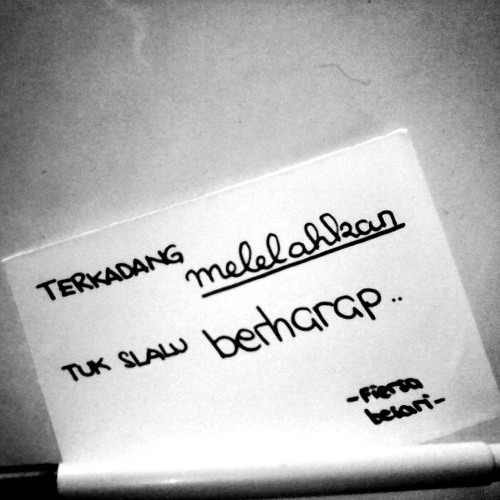 TERKADANG melelahkan
TUK SLALU berharap..
-Fiersa
besari-